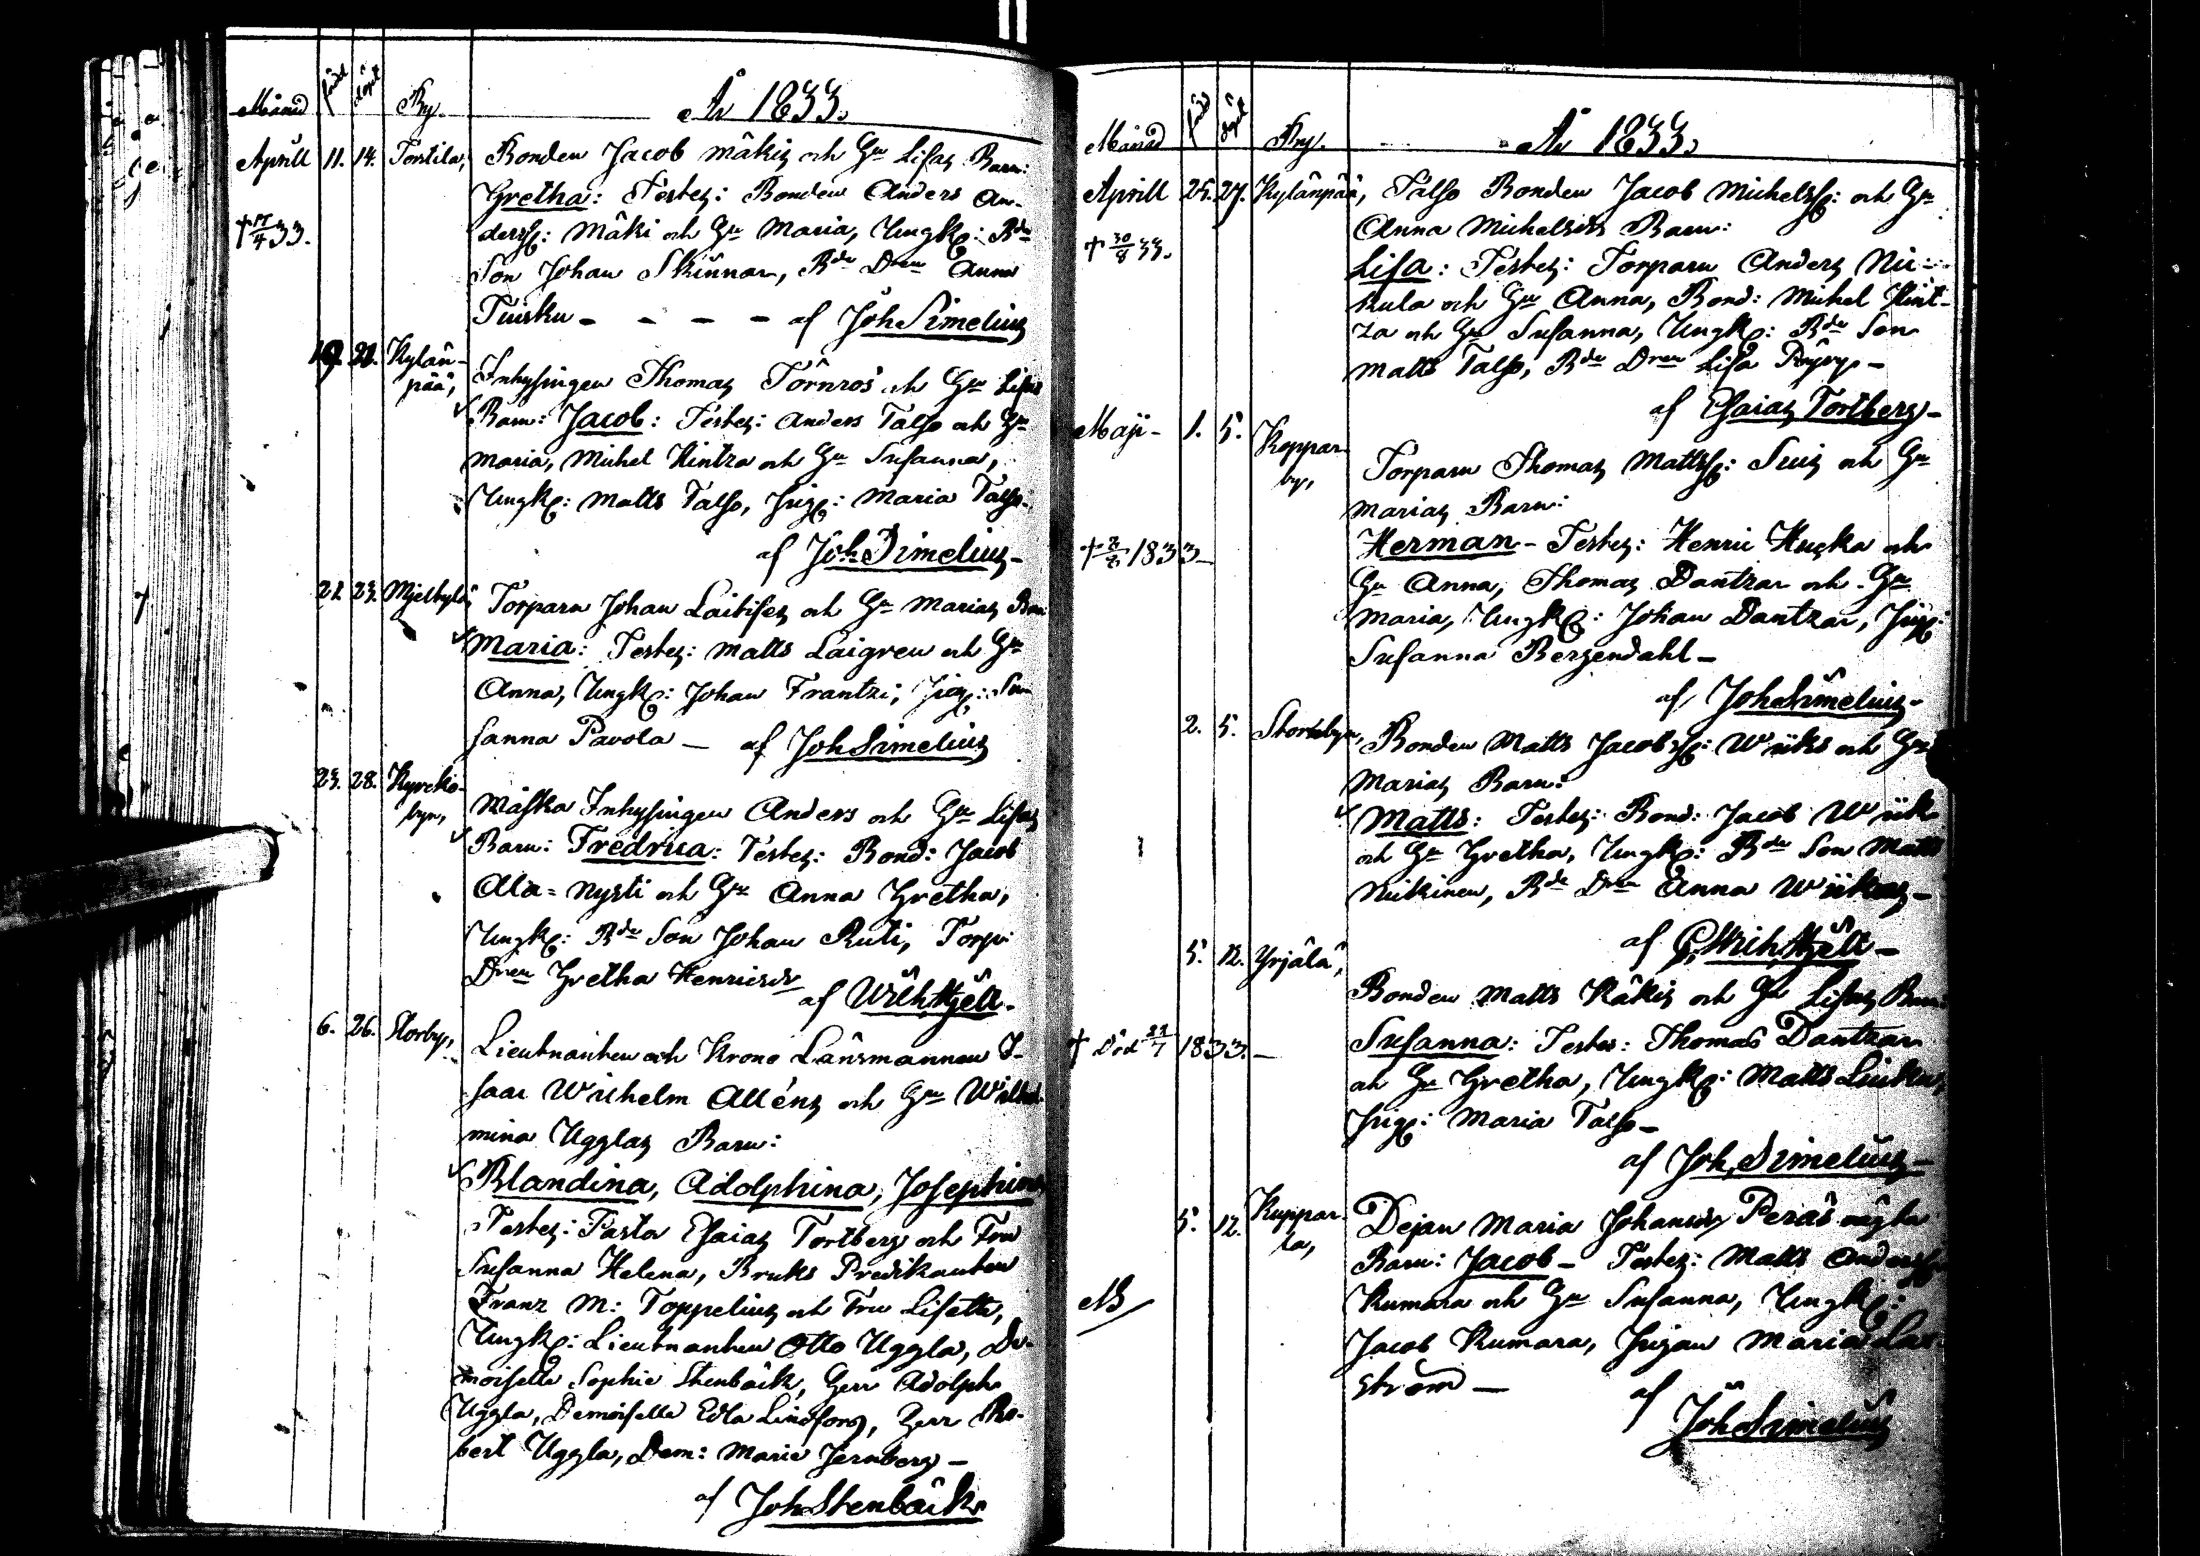 Månad född döpt By. År 1833.
Aprill 11. 14. Tortila, Bonden Jacob Mäkis och Hu Lisas Barn:
Gretha: Testes: Bonden Anders An-
† 17/4 33. derss: Mäki och Hu Maria, Ungk: Bde
Son Johan Skinnar, Bde Dren Anna
Tuisku - - - - af Joh Simelius
19. 21. Kylän-
pää, Inhysingen Thomas Törnros och Hu Lisas
Barn: Jacob: Testes: Anders Talso och Hu
Maria, Michel Hintza och Hu Susanna,
Ungk: Matts Talso, Pig: Maria Talso.
af Joh Simelius -
21. 23. Mjelkylä, Torparn Johan Laitises och Hu Marias Barn
Maria: Testes: Matts Laigren och Hu
Anna, Ungk: Johan Frantzi, Pig: Su-
sanna Pavola - af Joh Simelius
23. 28. Kyrcko-
byn, Måska Inhysingen Anders och Hu Lisas
Barn: Fredrica: Testes: Bond: Jacob
Ala-nysti och Hu Anna Gretha,
Ungk: Bde Son Johan Ruti, Torp:
Dren Gretha Henricsdr
af Wilh Kjell.
6. 26. Storby, Lieutnanten och Krono Länsmannen I-
saac Wilhelm Alléns och Hu Wilhel-
mina Ugglas Barn:
Blandina, Adolphina, Josephina
Testes: Pastor Esaias Tortberg och Fru
Susanna Helena, Bruks Predikanten
Franz M: Toppelius och Fru Lisette,
Ungk: Lieutnanten Otto Uggla, De-
moiselle Sophie Stenbäck, Herr Adolph
Uggla, Demoiselle Edla Lindfors, Herr Ro-
bert Uggla, Dem: Marie Jernberg -
af Joh Stenbäck
Månad född döpt By. År 1833.
Aprill 25. 27. Kylänpää, Talso Bonden Jacob Michelss: och Hu
Anna Michelsdrs Barn:
† 30/8 33. Lisa: Testes: Torparn Anders Ni-
kula och Hu Anna, Bond: Michel Hint-
za och Hu Susanna, Ungk: Bde Son
Matts Talso, Bde Dren Lisa -
af Esaias Tortberg -
Maji - 1. 5. Koppar
by, Torparn Thomas Mattss: och Hu
Marias Barn:
† 2/8 1833 - Herman - Testes: Henric Huska och
Hu Anna, Thomas Dantzar och Hu
Maria, Ungk: Johan Dantzar, Pig:
Susanna Bergendahl -
af Joh Simelius -
2. 5. Bonden Matts Jacobss: Wiiks och Hu
Marias Barn:
Matts: Testes: Bond: Jacob Wiik
och Hu Gretha, Ungk: Bde Son Matts
Nikinen, Bde Dren Anna
af C. Wilh Kjell -
5. 12. Yrjälä, Bonden Matts Käkis och Hu Lisas Barn
† Död 27/7 1833. - Susanna: Testes: Thomas Dantzar
och Hu Gretha, Ungk: Matts
Pig: Maria Talso -
af Joh Simelius -
5. 12. Kuppar-
la, Dejan Maria Johansdr Peräs oägta
Barn: Jacob - Testes: Matts Anderss:
NB Kumara och Hu Susanna, Ungk:
Jacob Kumara, Pigan Maria
ström - af
Joh Simelius